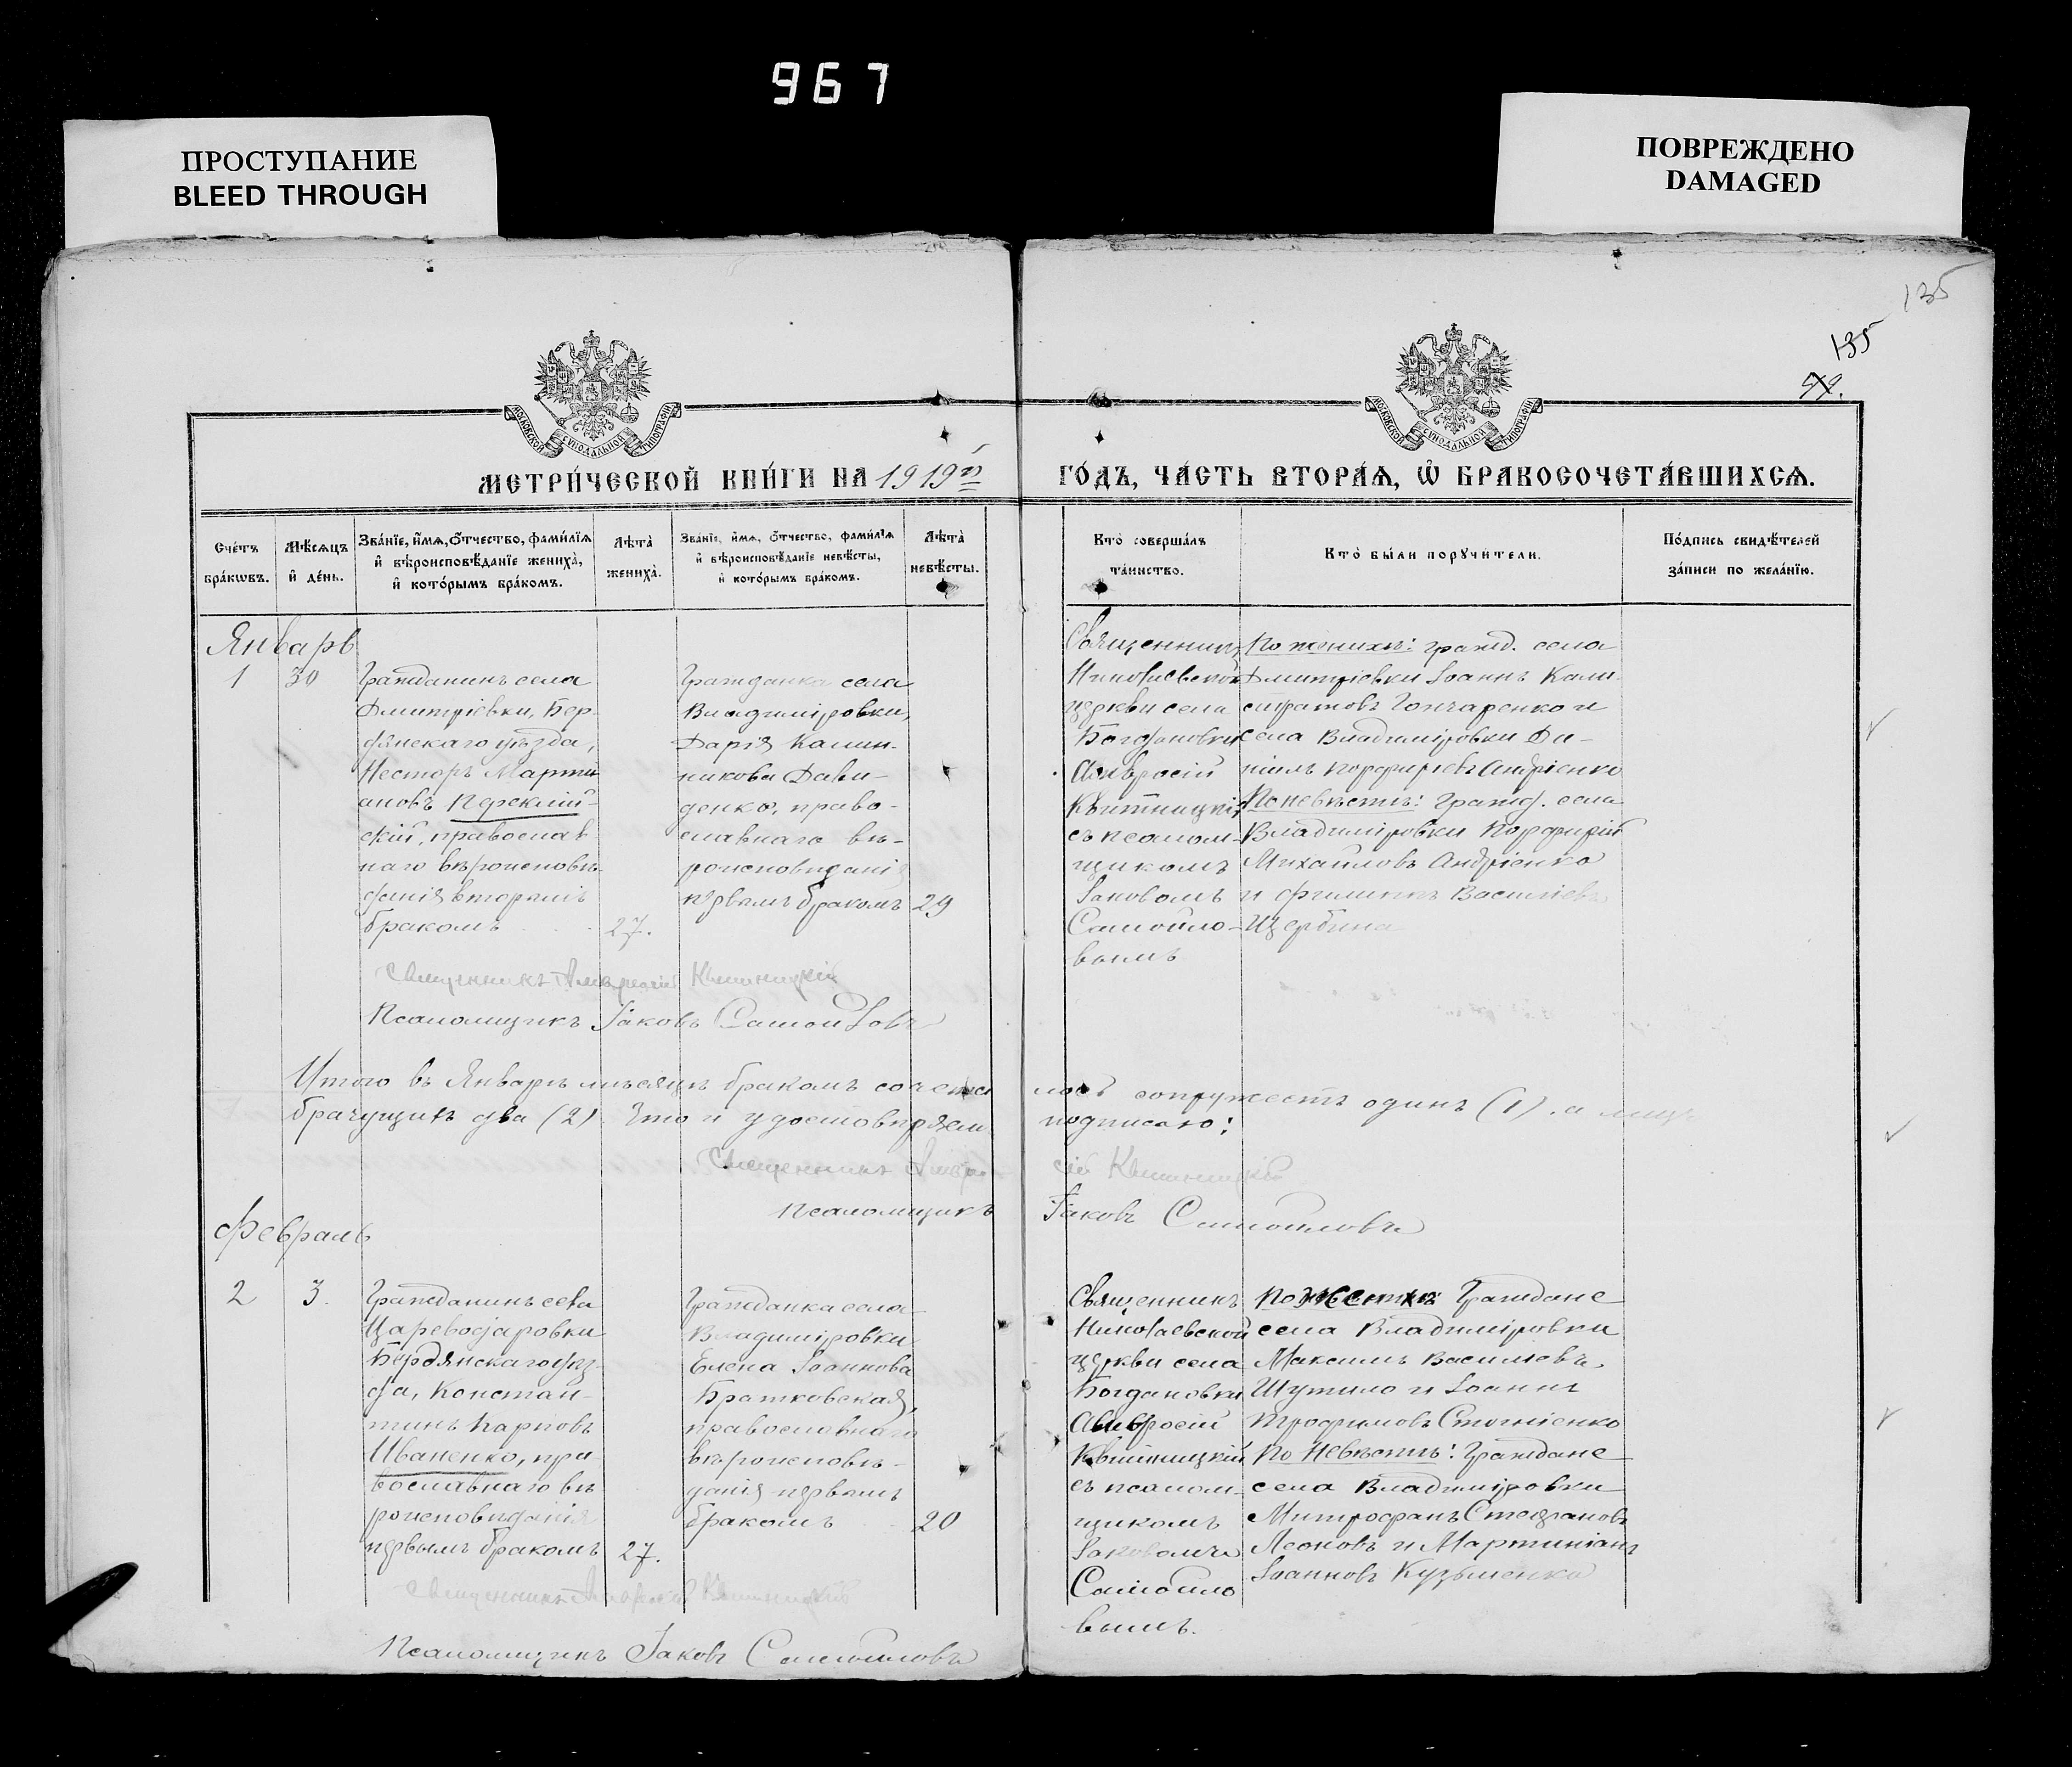 967
ПРОСТУПАНИЕ
BLEED THROUGH
ПОВРЕЖДЕНО
DAMAGED
135
135
МОСКОВСКОЙ СѴНОДАЛЬНОЙ ТИПОГРАФІИ
МОСКОВСКОЙ СѴНОДАЛЬНОЙ ТИПОГРАФІИ
МЕТРИ́ЧЕСКОЙ КНИ́ГИ НА 1919й ГО́ДЪ, ЧА́СТЬ ВТОРА́Ѧ, Ѽ БРАКОСОЧЕТА́ВШИХСѦ.
Сче́тъ
бра́кѡвъ.
Мѣ́сѧцъ
и҆ де́нь.
Зва́нїе, и҆́мѧ, ѻ҆́тчество, фами́лїѧ
и҆ вѣроисповѣ́данїе жениха̀,
и҆ кото́рымъ бра́комъ.
Лѣ́та̀
жениха̀.
Зва́нїе, и҆́мѧ, ѻ҆́тчество, фами́лїѧ
и҆ вѣроисповѣ́данїе невѣ́сты,
и҆ кото́рымъ бра́комъ.
Лѣ́та̀
невѣ́сты.
Кто̀ соверша́лъ
та́инство.
Кто̀ бы́ли порꙋчи́тели.
По́дпись свидѣ́телей
за́писи по жела́нїю.
Январь
1
30
Гражданинъ села
Дмитріевки, Бер-
дянскаго уѣзда,
Несторъ Марти
ановъ
скій, православ
наго вѣроисповѣ-
данія вторымъ
бракомъ
27.
Гражданка села
Владиміровки,
Дарія Калин-
никова Дави-
денко, право-
славнаго вѣ-
роисповѣданія
первымъ бракомъ
29
Священникъ
Николаевской
церкви села
Богдановки
Амвросій
Квитницкій
съ псалом-
щикомъ
Іаковомъ
Самойло-
вымъ
По женихѣ: гражд. села
Дмитріевки Іоаннъ Кали-
стратовъ Гончаренко и
села Владиміровки Да-
ніилъ Порфиріевъ Андріенко
По невѣстѣ: гражд. села
Владиміровки Порфирій
Михайловъ Андріенко
и Филиппъ Васильевъ
Щербина
Священникъ Амвросій Квитницкій
Псаломщикъ Іаковъ Самойловъ
Итого въ Январѣ мѣсяцѣ бракомъ сочета лось супружествъ одинъ (1), а лицъ
брачущихъ два (2). Что и удостовѣряемъ подписью:
Священникъ Амвро сій Квитницкій
Псаломщикъ Іаковъ Самойловъ
Февраль
2
3.
Гражданинъ села
Царевосдаровки
Бердянскаго уѣз-
да, Констан-
тинъ Карповъ
Иваненко, пра-
вославнаго вѣ
роисповѣданія
первымъ бракомъ
27.
Гражданка села
Владиміровки
Елена Іоаннова
Братковская,
православнаго
вѣроисповѣ-
данія первымъ
бракомъ
20
Священникъ
Николаевской
церкви села
Богдановки
Амвросій
Квитницкій
съ псалом-
щикомъ
Іаковомъ
Самойло
вымъ.
По женихѣ: Граждане
села Владиміровки
Максимъ Васильевъ
Шутило и Іоаннъ
Трофимовъ
По Невѣстѣ: Граждане
села Владиміровки
Митрофанъ Стефановъ
Леоновъ и Мартиніанъ
Іоанновъ Кузьменко
Священникъ Амвросій Квитницкій
Псаломщикъ Іаковъ Самойловъ